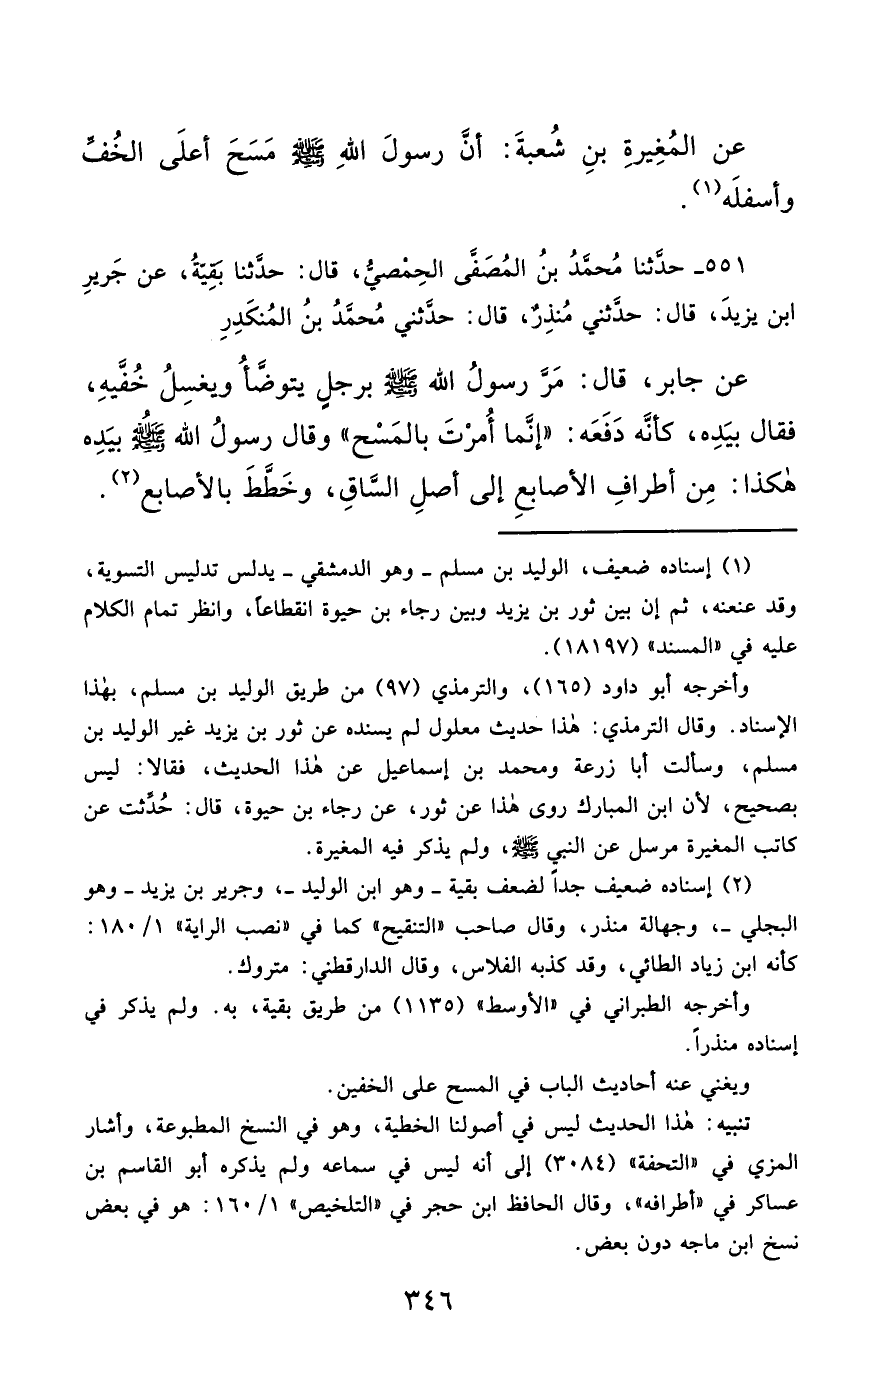 عن المُغِيرةِ بنِ شُعبةَ: أنَّ رسولَ اللهِ ﷺ مَسَحَ أعلَى الخُفِّ
وأسفلَه(١).
٥٥١ـ حدَّثنا مُحمَّدُ بنُ المُصَفَّى الحِمْصيُّ، قال: حدَّثنا بَقِيّةُ، عن جَريرِ
ابن يزيدَ، قال: حدَّثني مُنذِرٌ، قال: حدَّثني مُحمَّدُ بنُ المُنكَدِرِ
عن جابر، قال: مَرَّ رسولُ الله ﷺ برجلٍ يتوضَّأُ ويغسِلُ خُفَّيهِ،
فقال بيَدِه، كأنَّه دَفَعَه: «إنَّما أُمرْتَ بالمَسْح» وقال رسولُ الله ﷺ بيَدِه
هٰكذا: مِن أطرافِ الأصابعِ إلى أصلِ السَّاقِ، وخَطَّطَ بالأصابع(٢).
(١) إسناده ضعيف، الوليد بن مسلم ـ وهو الدمشقي ـ يدلس تدليس التسوية،
وقد عنعنه، ثم إن بين ثور بن يزيد وبين رجاء بن حيوة انقطاعاً، وانظر تمام الكلام
عليه في «المسند» (١٨١٩٧).
وأخرجه أبو داود (١٦٥)، والترمذي (٩٧) من طريق الوليد بن مسلم، بهٰذا
الإسناد. وقال الترمذي: هٰذا حديث معلول لم يسنده عن ثور بن يزيد غير الوليد بن
مسلم، وسألت أبا زرعة ومحمد بن إسماعيل عن هٰذا الحديث، فقالا: ليس
بصحيح، لأن ابن المبارك روى هٰذا عن ثور، عن رجاء بن حيوة، قال: حُدِّثت عن
كاتب المغيرة مرسل عن النبي ﷺ، ولم يذكر فيه المغيرة.
(٢) إسناده ضعيف جداً لضعف بقية ـ وهو ابن الوليد ـ، وجرير بن يزيد ـ وهو
البجلي ـ، وجهالة منذر، وقال صاحب «التنقيح» كما في «نصب الراية» ١/ ١٨٠:
كأنه ابن زياد الطائي، وقد كذبه الفلاس، وقال الدارقطني: متروك.
وأخرجه الطبراني في «الأوسط» (١١٣٥) من طريق بقية، به. ولم يذكر في
إسناده منذراً.
ويغني عنه أحاديث الباب في المسح على الخفين.
تنبيه: هٰذا الحديث ليس في أصولنا الخطية، وهو في النسخ المطبوعة، وأشار
المزي في «التحفة» (٣٠٨٤) إلى أنه ليس في سماعه ولم يذكره أبو القاسم بن
عساكر في «أطرافه»، وقال الحافظ ابن حجر في «التلخيص» ١/ ١٦٠: هو في بعض
نسخ ابن ماجه دون بعض.
٣٤٦